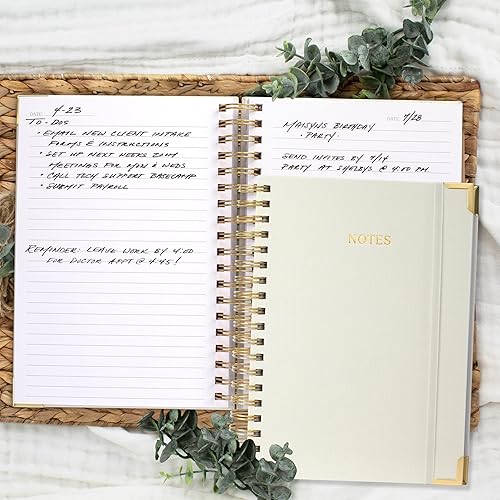 DATE: 4-23
TO-DOS
• EMAIL NEW CLIENT INTAKE
FORMS & INSTRUCTIONS
• SET UP NEXT WEEKS ZOOM
MEETINGS FOR MON & WEDS
• CALL TECH SUPPORT BASECAMP
• SUBMIT PAYROLL
REMINDER: LEAVE WORK BY 4:00
FOR DOCTOR APPT @ 4:45!
DATE: 7/28
MAISYNS BIRTHDAY
• PARTY •
SEND INVITES BY 7/14
PARTY AT SHELBYS @ 4:00 PM.
NOTES